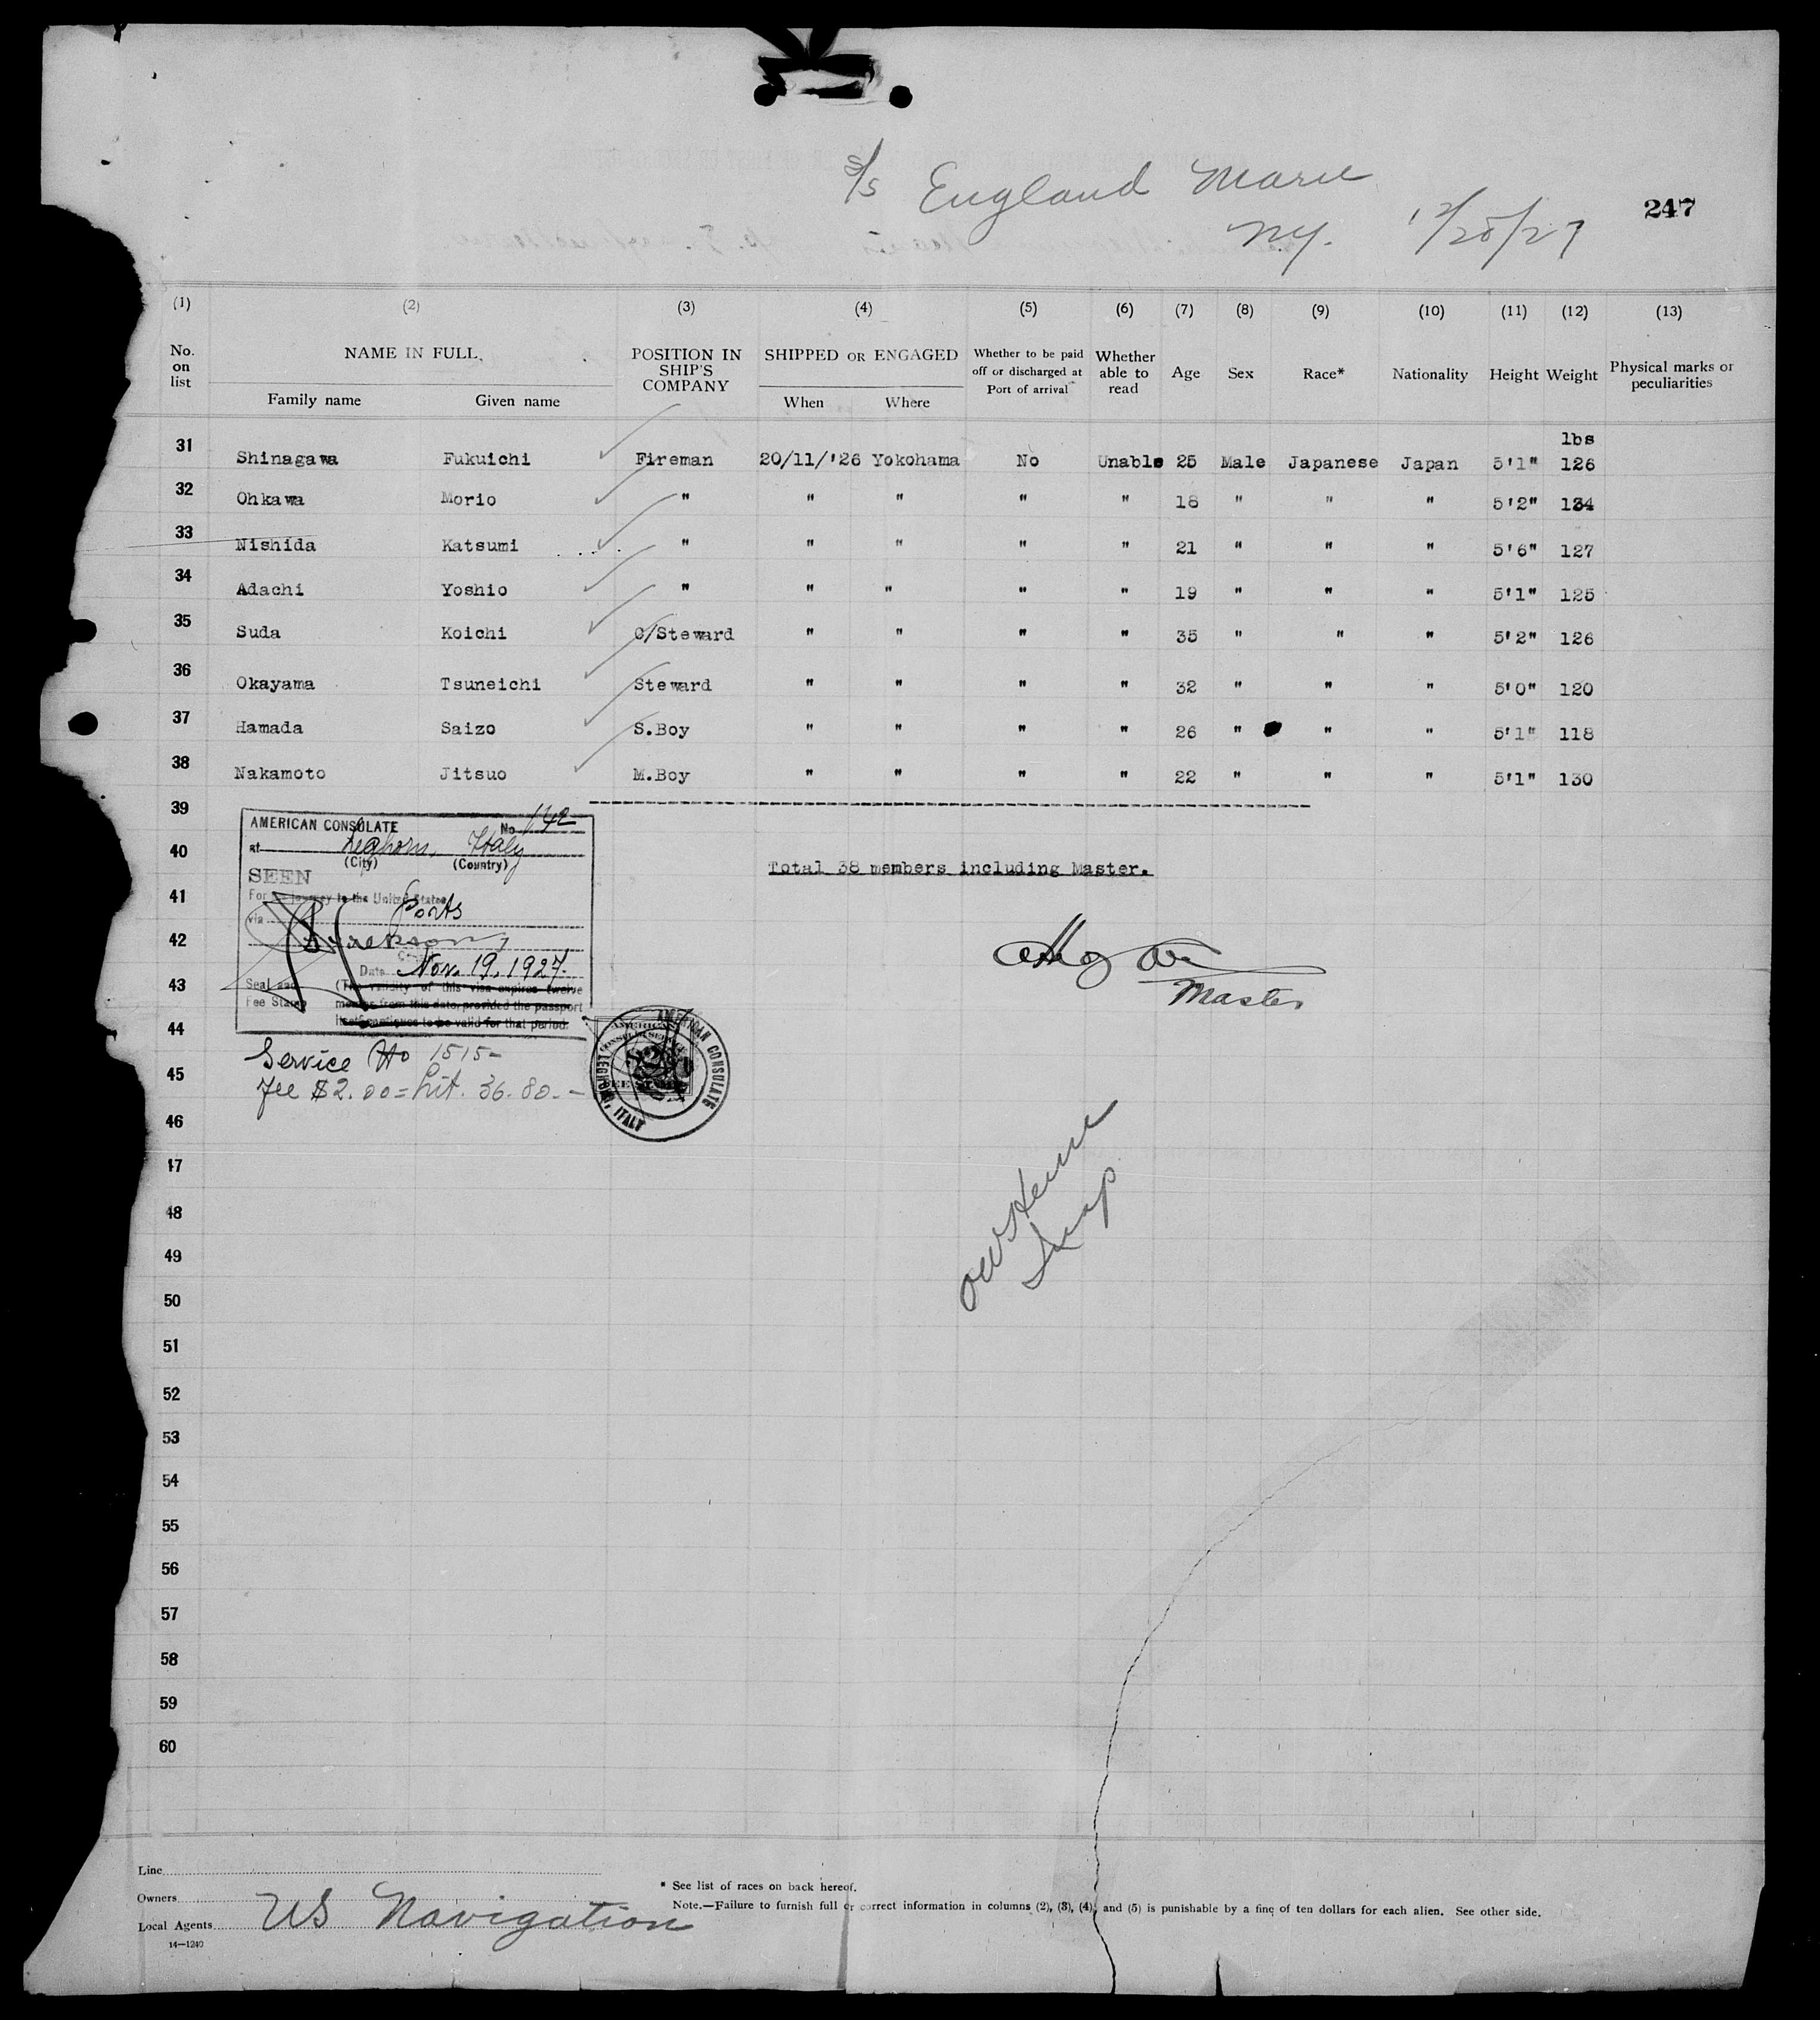 S/S England Maru
247
N.Y. 12/20/27
(1) (2) (3) (4) (5) (6) (7) (8) (9) (10) (11) (12) (13)
No. on list NAME IN FULL, POSITION IN SHIP'S COMPANY SHIPPED OR ENGAGED Whether to be paid off or discharged at Port of arrival Whether able to read Age Sex Race* Nationality Height Weight Physical marks or peculiarities
Family name Given name When Where
lbs
31 Shinagawa Fukuichi Fireman 20/11/'26 Yokohama No Unable 25 Male Japanese Japan 5'1" 126
32 Ohkawa Morio " " " " " 18 " " " 5'2" 134
33 Nishida Katsumi " " " " " 21 " " " 5'6" 127
34 Adachi Yoshio " " " " " 19 " " " 5'1" 125
35 Suda Koichi C/Steward " " " " 35 " " " 5'2" 126
36 Okayama Tsuneichi Steward " " " " 32 " " " 5'0" 120
37 Hamada Saizo S.Boy " " " " 26 " " " 5'1" 118
38 Nakamoto Jitsuo M.Boy " " " " 22 " " " 5'1" 130
39
AMERICAN CONSULATE No 142
at Leghorn, Italy
(City) (Country)
40
Total 38 members including Master.
SEEN
41
For the journey to the United States
via Ports
42
43
Date Nov. 19, 1927.
Master
Seal and Fee Stamp
(The validity of this visa expires twelve
months from this date, provided the passport
itself continues to be valid for that period.
44
AMERICAN CONSULATE
LEGHORN, ITALY
Service No 1515-
45
Fee $2.00 = Lit. 36.80.-
46
47
48
Insp
49
50
51
52
53
54
55
56
57
58
59
60
Line
* See list of races on back hereof.
Owners
Note.—Failure to furnish full or correct information in columns (2), (3), (4), and (5) is punishable by a fine of ten dollars for each alien. See other side.
Local Agents US Navigation
14—1240